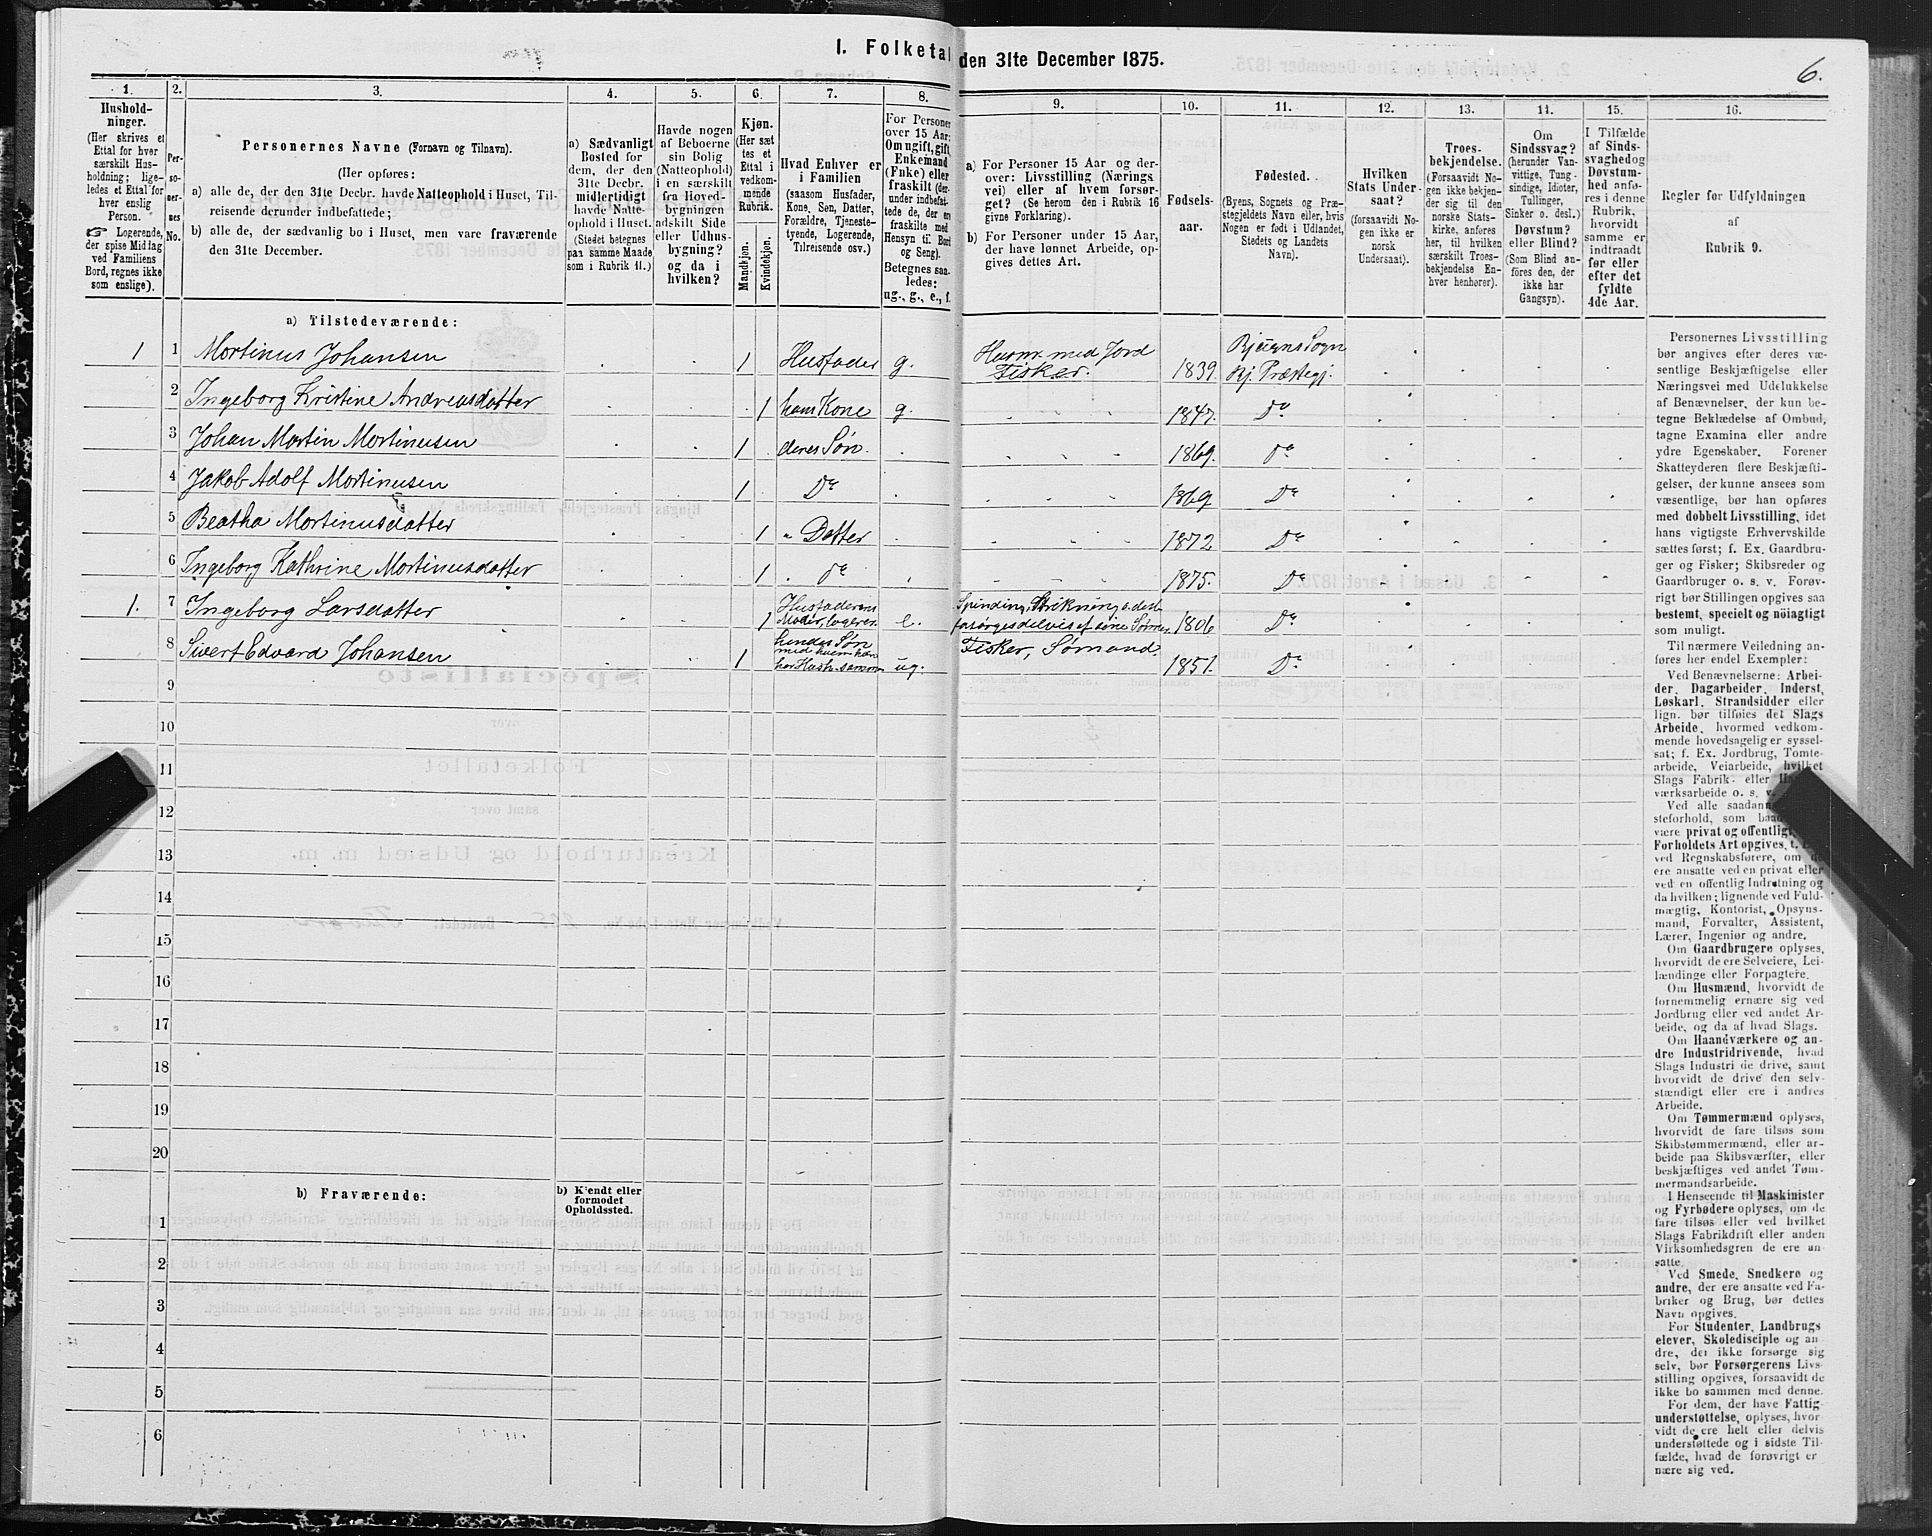 I. Folketal den 31te December 1875.
6.
1.
2.
3.
4.
5.
6.
7.
8.
9.
10.
11.
12.
13.
14.
15.
16.
Hushold-
ninger.
(Her skrives et
Ettal for hver
særskilt Hus-
holdning; lige-
ledes et Ettal for
hver enslig
Person.
☞ Logerende,
der spise Middag
ved Familiens
Bord, regnes ikke
som enslige).
Per-
so-
ner-
nes
No.
Personernes Navne (Fornavn og Tilnavn).
(Her opføres:
a) alle de, der den 31te Decbr. havde Natteophold i Huset, Til-
reisende derunder indbefattede;
b) alle de, der sædvanlig bo i Huset, men vare fraværende
den 31te December.
a) Sædvanligt
Bosted for
dem, der den
31te Decbr.
midlertidigt
havde Natte-
ophold i Huset.
(Stedet betegnes
paa samme Maade
som i Rubrik 11.)
Havde nogen
af Beboerne
sin Bolig
(Natteophold)
i en særskilt
fra Hoved-
bygningen
adskilt Side
eller Udhus-
bygning?
og da i
hvilken?
Kjøn.
(Her sæt
tes et
Ettal i
vedkom-
mende
Rubrik.
Mandkjøn.
Kvindekjøn.
Hvad Enhver er
i Familien
(saasom Husfader,
Kone, Søn, Datter,
Forældre, Tjeneste-
tyende, Logerende,
Tilreisende osv.)
For Personer
over 15 Aar:
Om ugift, gift,
Enkemand
(Enke) eller
fraskilt (der-
under indbefat-
tede de, der ere
fraskilte med
Hensyn til Bord
og Seng).
Betegnes saa-
ledes:
ug., g., e., f.
a) For Personer 15 Aar og der-
over: Livsstilling (Nærings-
vei) eller af hvem forsør-
get? (Se herom den i Rubrik 16
givne Forklaring).
b) For Personer under 15 Aar,
der have lønnet Arbeide, op-
gives dettes Art.
Fødsels-
aar.
Fødested.
(Byens, Sognets og Præ-
stegjeldets Navn eller, hvis
Nogen er født i Udlandet,
Stedets og Landets
Navn).
Hvilken
Stats Under-
saat?
(forsaavidt No-
gen ikke er
norsk
Undersaat).
Troes-
bekjendelse.
(Forsaavidt No-
gen ikke bekjen-
der sig til den
norske Stats-
kirke, anføres
her, til hvilken
særskilt Troes-
bekjendelse En-
hver henhører).
Om
Sindssvag?
(herunder Van-
vittige, Tung-
sindige, Idioter,
Tullinger,
Sinker o. desl.)
Døvstum?
eller Blind?
(Som Blind an-
føres den, der
ikke har
Gangsyn).
I Tilfælde
af Sinds-
svaghed og
Døvstum-
hed anfø-
res i denne
Rubrik,
hvorvidt
samme er
indtraadt
før eller
efter det
fyldte
4de Aar.
Regler før Udfyldningen
af
Rubrik 9.
a) Tilstedeværende:
1 1 Mortinus Johansen 1 Husfader g. Husm. med Jord Fisker. 1839 Bjugns Sogn Bj. Præstegj.
2 Ingeborg Kristine Andreasdatter 1 hans Kone g. 1847. Do
3 Johan Martin Mortinusen 1 deres Søn. 1869. Do
4 Jakob Adolf Mortinusen 1 Do 1869 Do
5 Beatha Mortinusdatter 1 " Datter 1872 Do
6 Ingeborg Kathrine Mortinusdatter 1 Do 1875. Do
1. 7 Ingeborg Larsdatter 1 Husfaderens Moder, logerer. e. Spinding, Strikning o. desl. forsørges delvis af sine Sønner, 1806 Do
8 Sivert Edvard Johansen 1 hendes Søn med hvem hun har Hush. sammen ug. Fisker, Sømand. 1851. Do
9
10
11
12
13
14
15
16
17
18
19
20
b) Fraværende:
b) Kjendt eller
formodet
Opholdssted.
1
2
3
4
5
6
Personernes Livsstilling
bør angives efter deres væ-
sentlige Beskjæftigelse eller
Næringsvei med Udelukkelse
af Benævnelser, der kun be-
tegne Beklædelse af Ombud,
tagne Examina eller andre
ydre Egenskaber. Forener
Skatteyderen flere Beskjæfti-
gelser, der kunne ansees som
væsentlige, bør han opføres
med dobbelt Livsstilling, idet
hans vigtigste Erhvervskilde
sættes først; f. Ex. Gaardbru-
ger og Fisker; Skibsreder og
Gaardbruger o. s. v. Forøv-
rigt bør Stillingen opgives saa
bestemt, specielt og nöiagtigt
som muligt.
Til nærmere Veiledning an-
føres her endel Exempler:
Ved Benævnelserne: Arbei-
der, Dagarbeider, Inderst,
Løskarl, Strandsidder eller
lign. bør tilføies det Slags
Arbeide, hvormed vedkom-
mende hovedsagelig er syssel-
sat; f. Ex. Jordbrug, Tomte-
arbeide, Veiarbeide, hvilket
Slags Fabrik- eller
værksarbeide o. s. v.
Ved alle saadan
steforhold, som
være privat og offentlig
Forholdets Art opgives, t.
ved Regnskabsførere, om
ere ansatte ved en privat eller
ved en offentlig Indretning og
da hvilken; lignende ved Fuld-
mægtig, Kontorist, Opsyns-
mand, Forvalter, Assistent,
Lærer, Ingeniør og andre.
Om Gaardbrugere oplyses,
hvorvidt de ere Selveiere, Lei-
lændinge eller Forpagtere.
Om Husmænd, hvorvidt de
fornemmelig ernære sig ved
Jordbrug eller ved andet Ar-
beide, og da af hvad Slags.
Om Haandværkere og an-
dre Industridrivende, hvad
Slags Industri de drive, samt
hvorvidt de drive den selv-
stændigt eller ere i andres
Arbeide.
Om Tømmermænd oplyses,
hvorvidt de fare tilsøs som
Skibstømmermænd, eller ar-
beide paa Skibsværfter, eller
beskjæftiges ved andet Tøm-
mermandsarbeide.
I Henseende til Maskinister
og Fyrbødere oplyses, om de
fare tilsøs eller ved hvilket
Slags Fabrikdrift eller anden
Virksomhedsgren de ere an-
satte.
Ved Smede, Snedkere og
andre, der ere ansatte ved Fa-
briker og Brug, bør dettes
Navn opgives.
For Studenter, Landbrugs
elever, Skoledisciple og an-
dre, der ikke forsørge sig
selv, bør Forsørgerens Livs-
stilling opgives, forsaavidt de
ikke bo sammen med denne.
For dem, der have Fattig-
understøttelse, oplyses, hvor-
vidt de ere helt eller delvis
understøttede og i sidste Til-
fælde, hvad de forøvrigt er
nære sig ved.